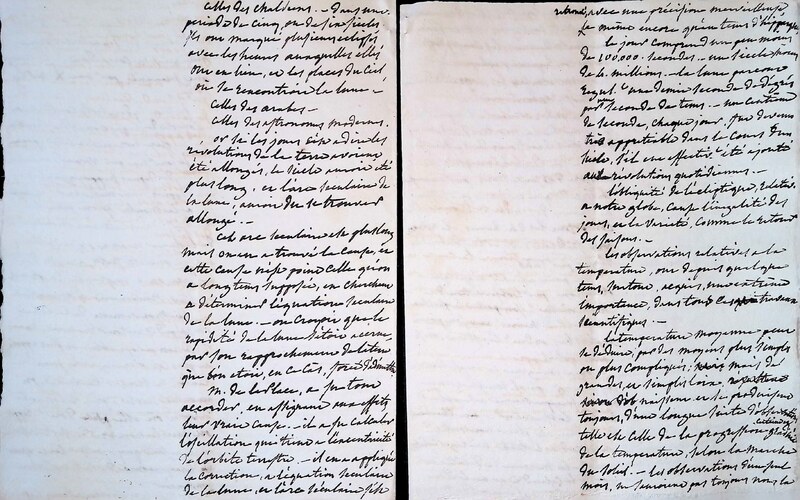 celles des chaldéens. - Dans une
période de cinq, ou de six siècles
ils ont marqué plusieurs éclipses
avec les heures auxquelles elles
ont eu lieu, et les places du Ciel
où se rencontroit la lune. -
celles des arabes. -
celles des astronomes modernes.
or si les jours c'est à dire les
révolutions de la terre avoient
été allongés, le siècle auroit été
plus long, et l'arc séculaire de
la lune, auroit du se trouver
allongé. -
Cet arc séculaire est plus long
mais on en a trouvé la cause, et
cette cause n'est point celle qu'on
a long tems supposée, en cherchant
a déterminer l'équation séculaire
de la lune. - on croyoit que la
rapidité de la lune s'étoit accrue,
par son rapprochement de la terre
que l'on étoit, en ce cas, forcé d'admettre
m. de la place, a su tout
accorder, en assignant aux effets
leur vraie cause. - il a su calculer
l'oscillation qui tient a l'excentricité
de l'orbite terrestre. - il en a appliqué
la correction, a l'équation séculaire
de la lune, et l'arc séculaire s'est
retrouvé, avec une précision merveilleuse
le même encore qu'au tems d'hipparque
le jour comprend un peu moins
de 100,000 secondes. - un siècle moins
de 4. millions. - La lune parcourt
une demie seconde de degrés
par seconde de tems. - un centième
de seconde, chaque jour, fut devenu
très appréciable dans le cours d'un
siècle, s'il eut effectiv.t été ajouté
aux révolutions quotidiennes. -
l'obliquité de l'écliptique, relative
a notre globe, cause l'inégalité des
jours, et la variété, comme le retour
des saisons. -
les observations relatives a la
température, ont depuis quelque
tems, surtout, acquis, une extrême
importance, dans tous les travaux
scientifiques. -
la température moyenne peut
se déduire, par des moyens plus simples
ou plus compliqués, mais de
grandes, et simples loix,
naissent et se produisent
toujours, d'une longue suite d'observations
telle est celle de la progression
de la température, selon la marche
du soleil. - les observations d'un seul
mois, ne seroient pas toujours nous la